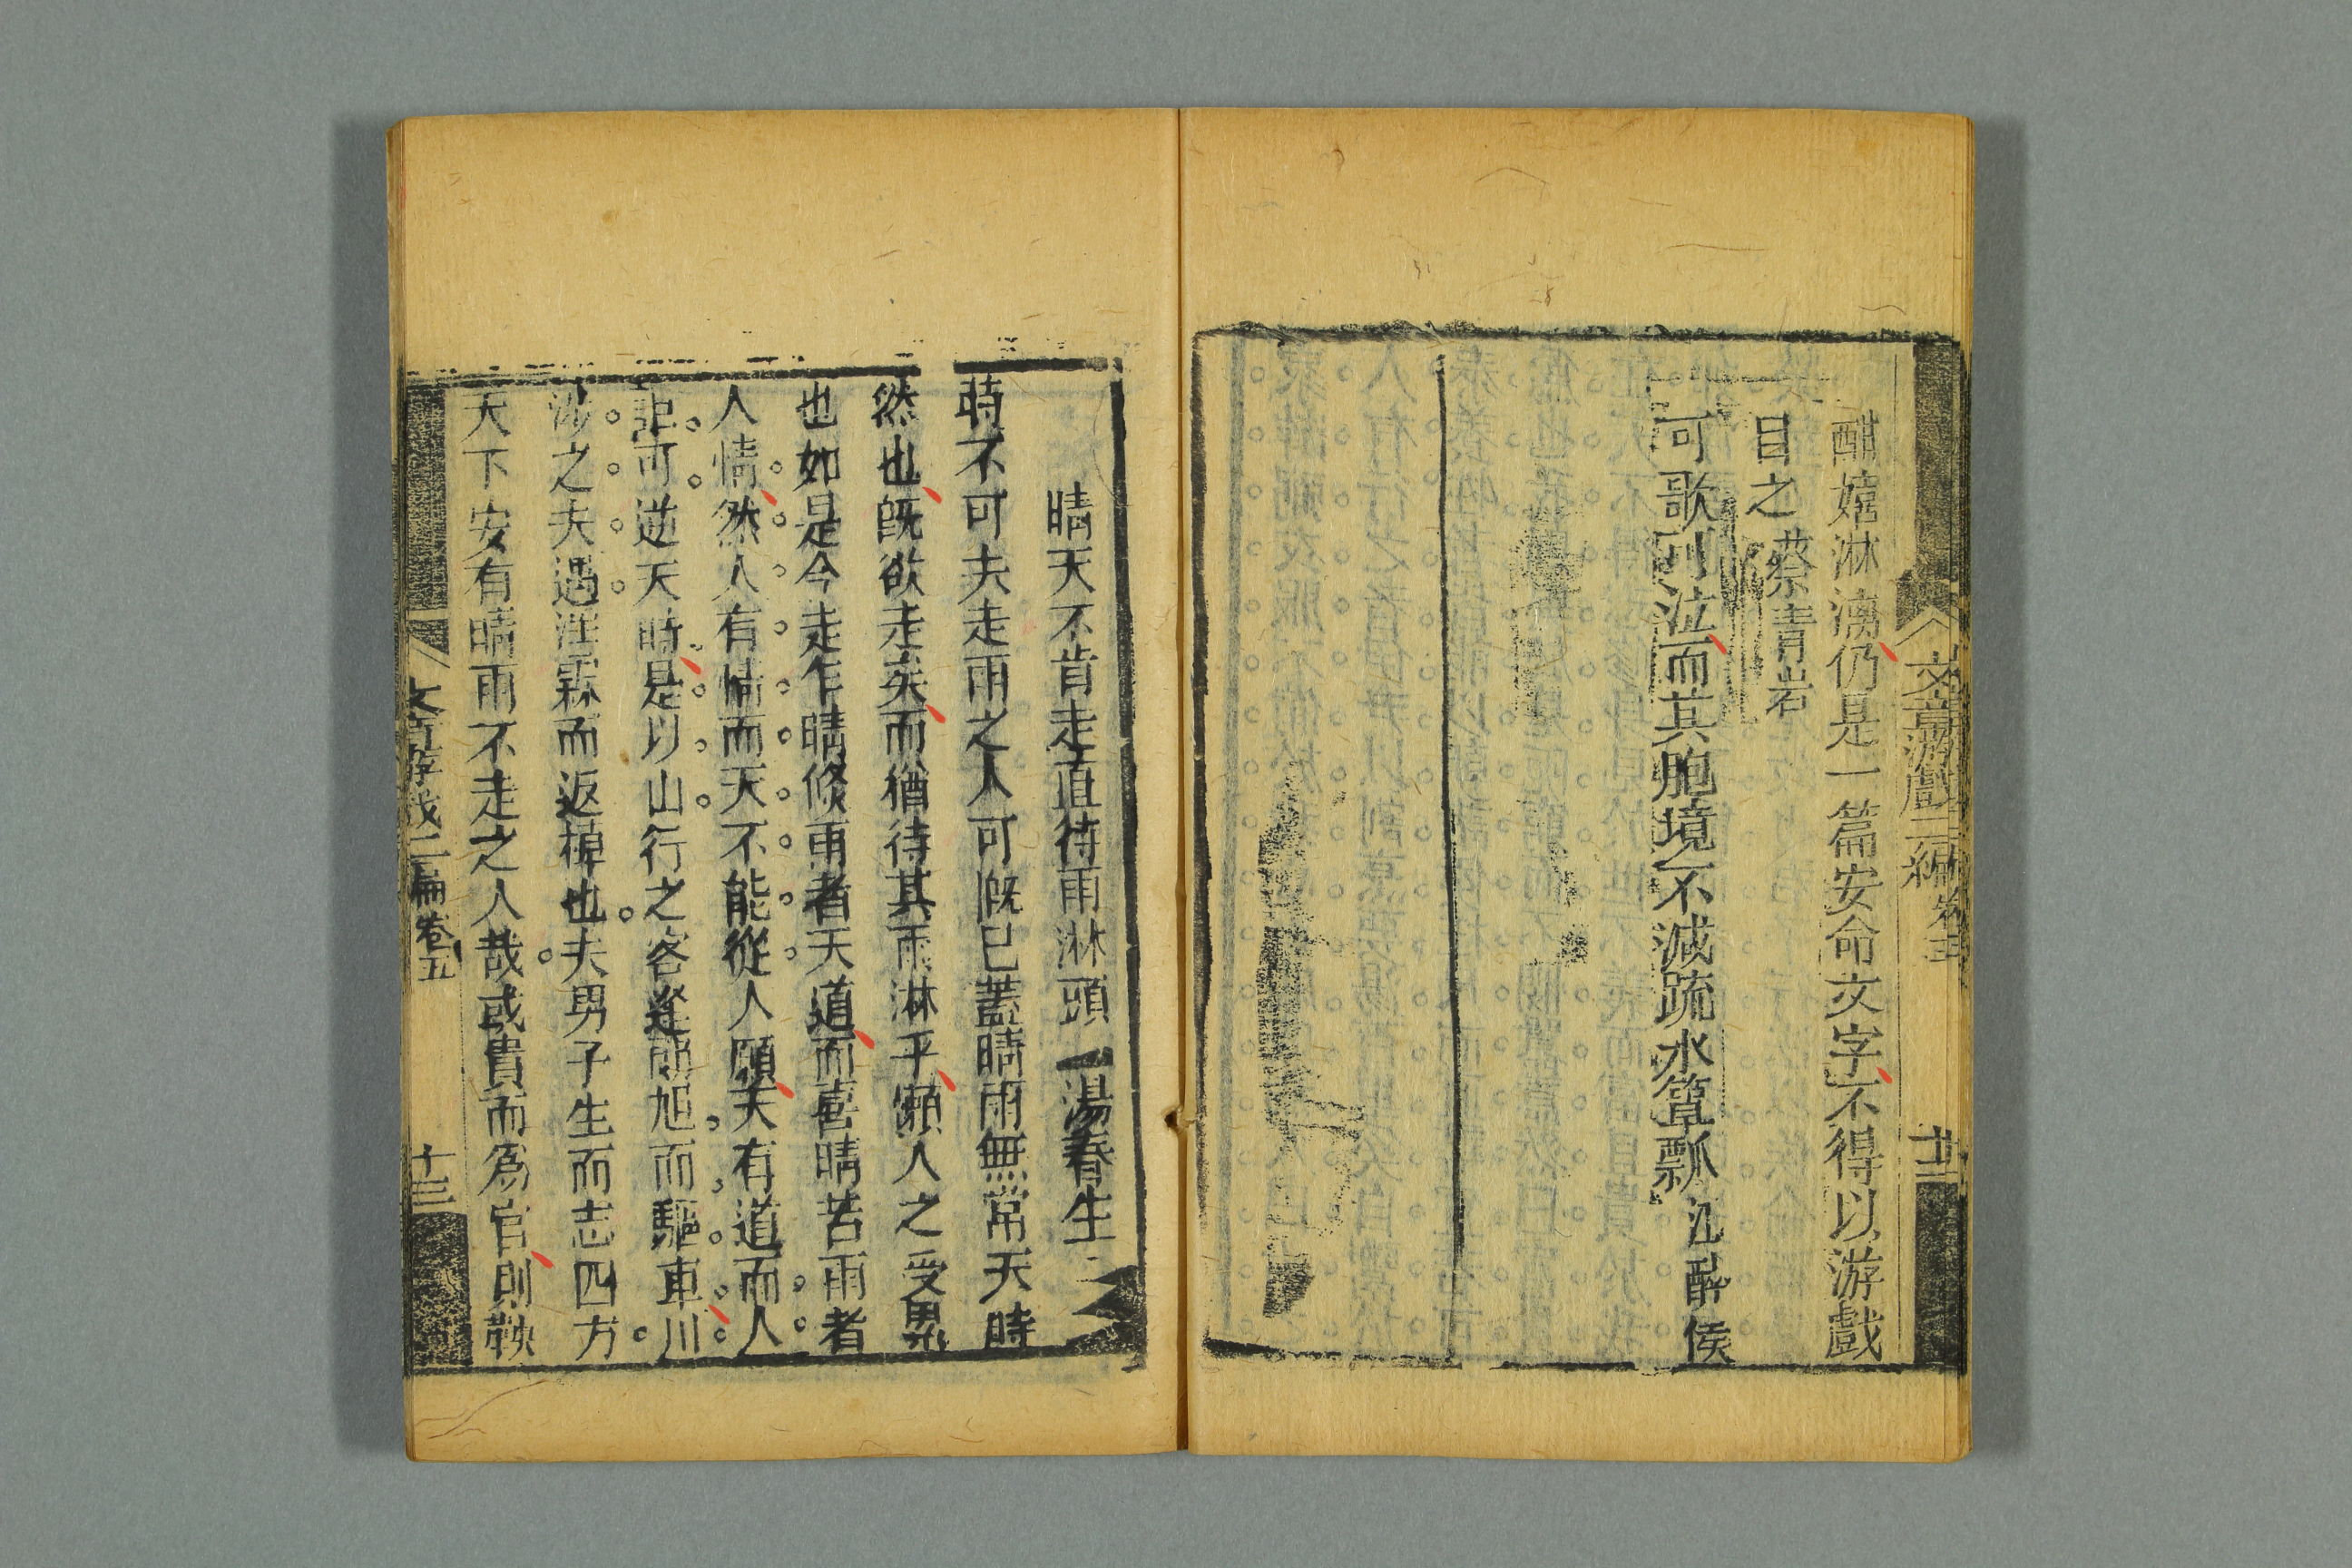 文章游戲二編 卷五 十二
酣嬉淋漓仍是一篇安命文字不得以游戲
目之 蔡青岩
可歌可泣而其胞境不減疏水簞瓢 江醉侯
晴天不肯走直待雨淋頭 湯春生
時不可夫走雨之人可慨已蓋晴雨無常天時
然也旣欲走矣而猶待其雨淋乎懶人之受累
也如是今走乍晴倐雨者天道而喜晴苦雨者
人情然人有情而天不能從人願天有道而人
詎可逆天時是以山行之客逢颀旭而驅車川
涉之夫遇淫霖而返棹也夫男子生而志四方
天下安有晴雨不走之人哉或貴而爲官則鞅
文章游戲二編 卷五 十三